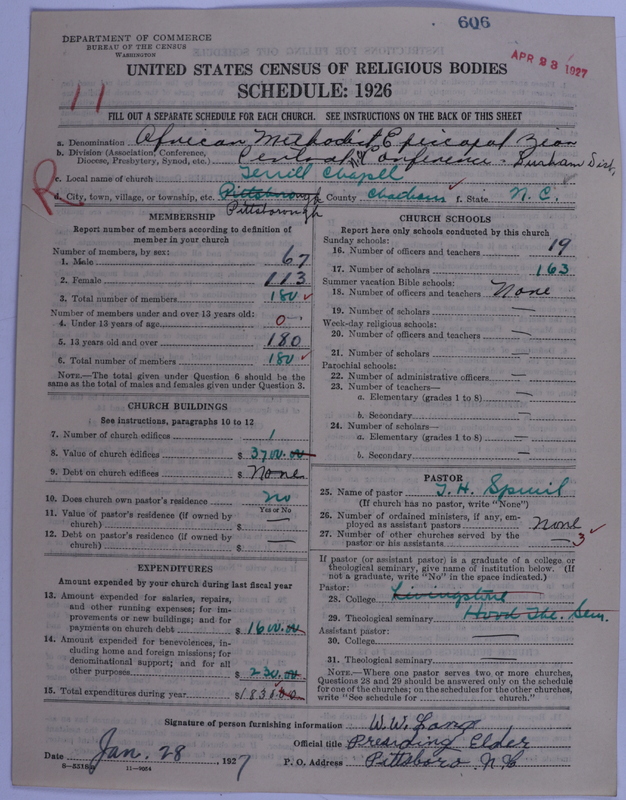 606
DEPARTMENT OF COMMERCE
BUREAU OF THE CENSUS
WASHINGTON
APR 23 1927
UNITED STATES CENSUS OF RELIGIOUS BODIES
SCHEDULE: 1926
11
FILL OUT A SEPARATE SCHEDULE FOR EACH CHURCH. SEE INSTRUCTIONS ON THE BACK OF THIS SHEET
a. Denomination African Methodist Episcopal Zion
b. Division (Association, Conference, Diocese, Presbytery, Synod, etc.) Central N.C. Conference - Durham Dist,
c. Local name of church Terrill Chapel
R
d. City, town, village, or township, etc. Pittsborough e. County Chatham f. State N. C.
Pittsborough
MEMBERSHIP
Report number of members according to definition of member in your church
Number of members, by sex:
1. Male 67
2. Female 113
3. Total number of members 180
Number of members under and over 13 years old:
4. Under 13 years of age 0
5. 13 years old and over 180
6. Total number of members 180
NOTE.—The total given under Question 6 should be the same as the total of males and females given under Question 3.
CHURCH BUILDINGS
See instructions, paragraphs 10 to 12
7. Number of church edifices 1
8. Value of church edifices $ 3700.00
9. Debt on church edifices $ None
10. Does church own pastor's residence no
Yes or No
11. Value of pastor's residence (if owned by church) $ —
12. Debt on pastor's residence (if owned by church) $ —
EXPENDITURES
Amount expended by your church during last fiscal year
13. Amount expended for salaries, repairs, and other running expenses; for improvements or new buildings; and for payments on church debt $ 1600.00
14. Amount expended for benevolences, including home and foreign missions; for denominational support; and for all other purposes $ 230.00
15. Total expenditures during year $ 1830.00
CHURCH SCHOOLS
Report here only schools conducted by this church
Sunday schools:
16. Number of officers and teachers 19
17. Number of scholars 163
Summer vacation Bible schools:
18. Number of officers and teachers None
19. Number of scholars —
Week-day religious schools:
20. Number of officers and teachers —
21. Number of scholars —
Parochial schools:
22. Number of administrative officers —
23. Number of teachers—
a. Elementary (grades 1 to 8) —
b. Secondary —
24. Number of scholars—
a. Elementary (grades 1 to 8) —
b. Secondary —
PASTOR
25. Name of pastor
(If church has no pastor, write "None")
26. Number of ordained ministers, if any, employed as assistant pastors None
27. Number of other churches served by the pastor or his assistants — 3
If pastor (or assistant pastor) is a graduate of a college or theological seminary, give name of institution below. (If not a graduate, write "No" in the space indicated.)
Pastor:
28. College Livingstone
29. Theological seminary Hood The. Sem.
Assistant pastor:
30. College —
31. Theological seminary —
NOTE.—Where one pastor serves two or more churches, Questions 28 and 29 should be answered only on the schedule for one of the churches; on the schedules for the other churches, write "See schedule for church."
Signature of person furnishing information W. W. Long
Official title Presiding Elder
Date Jan. 28 1927
P. O. Address Pittsboro N.C